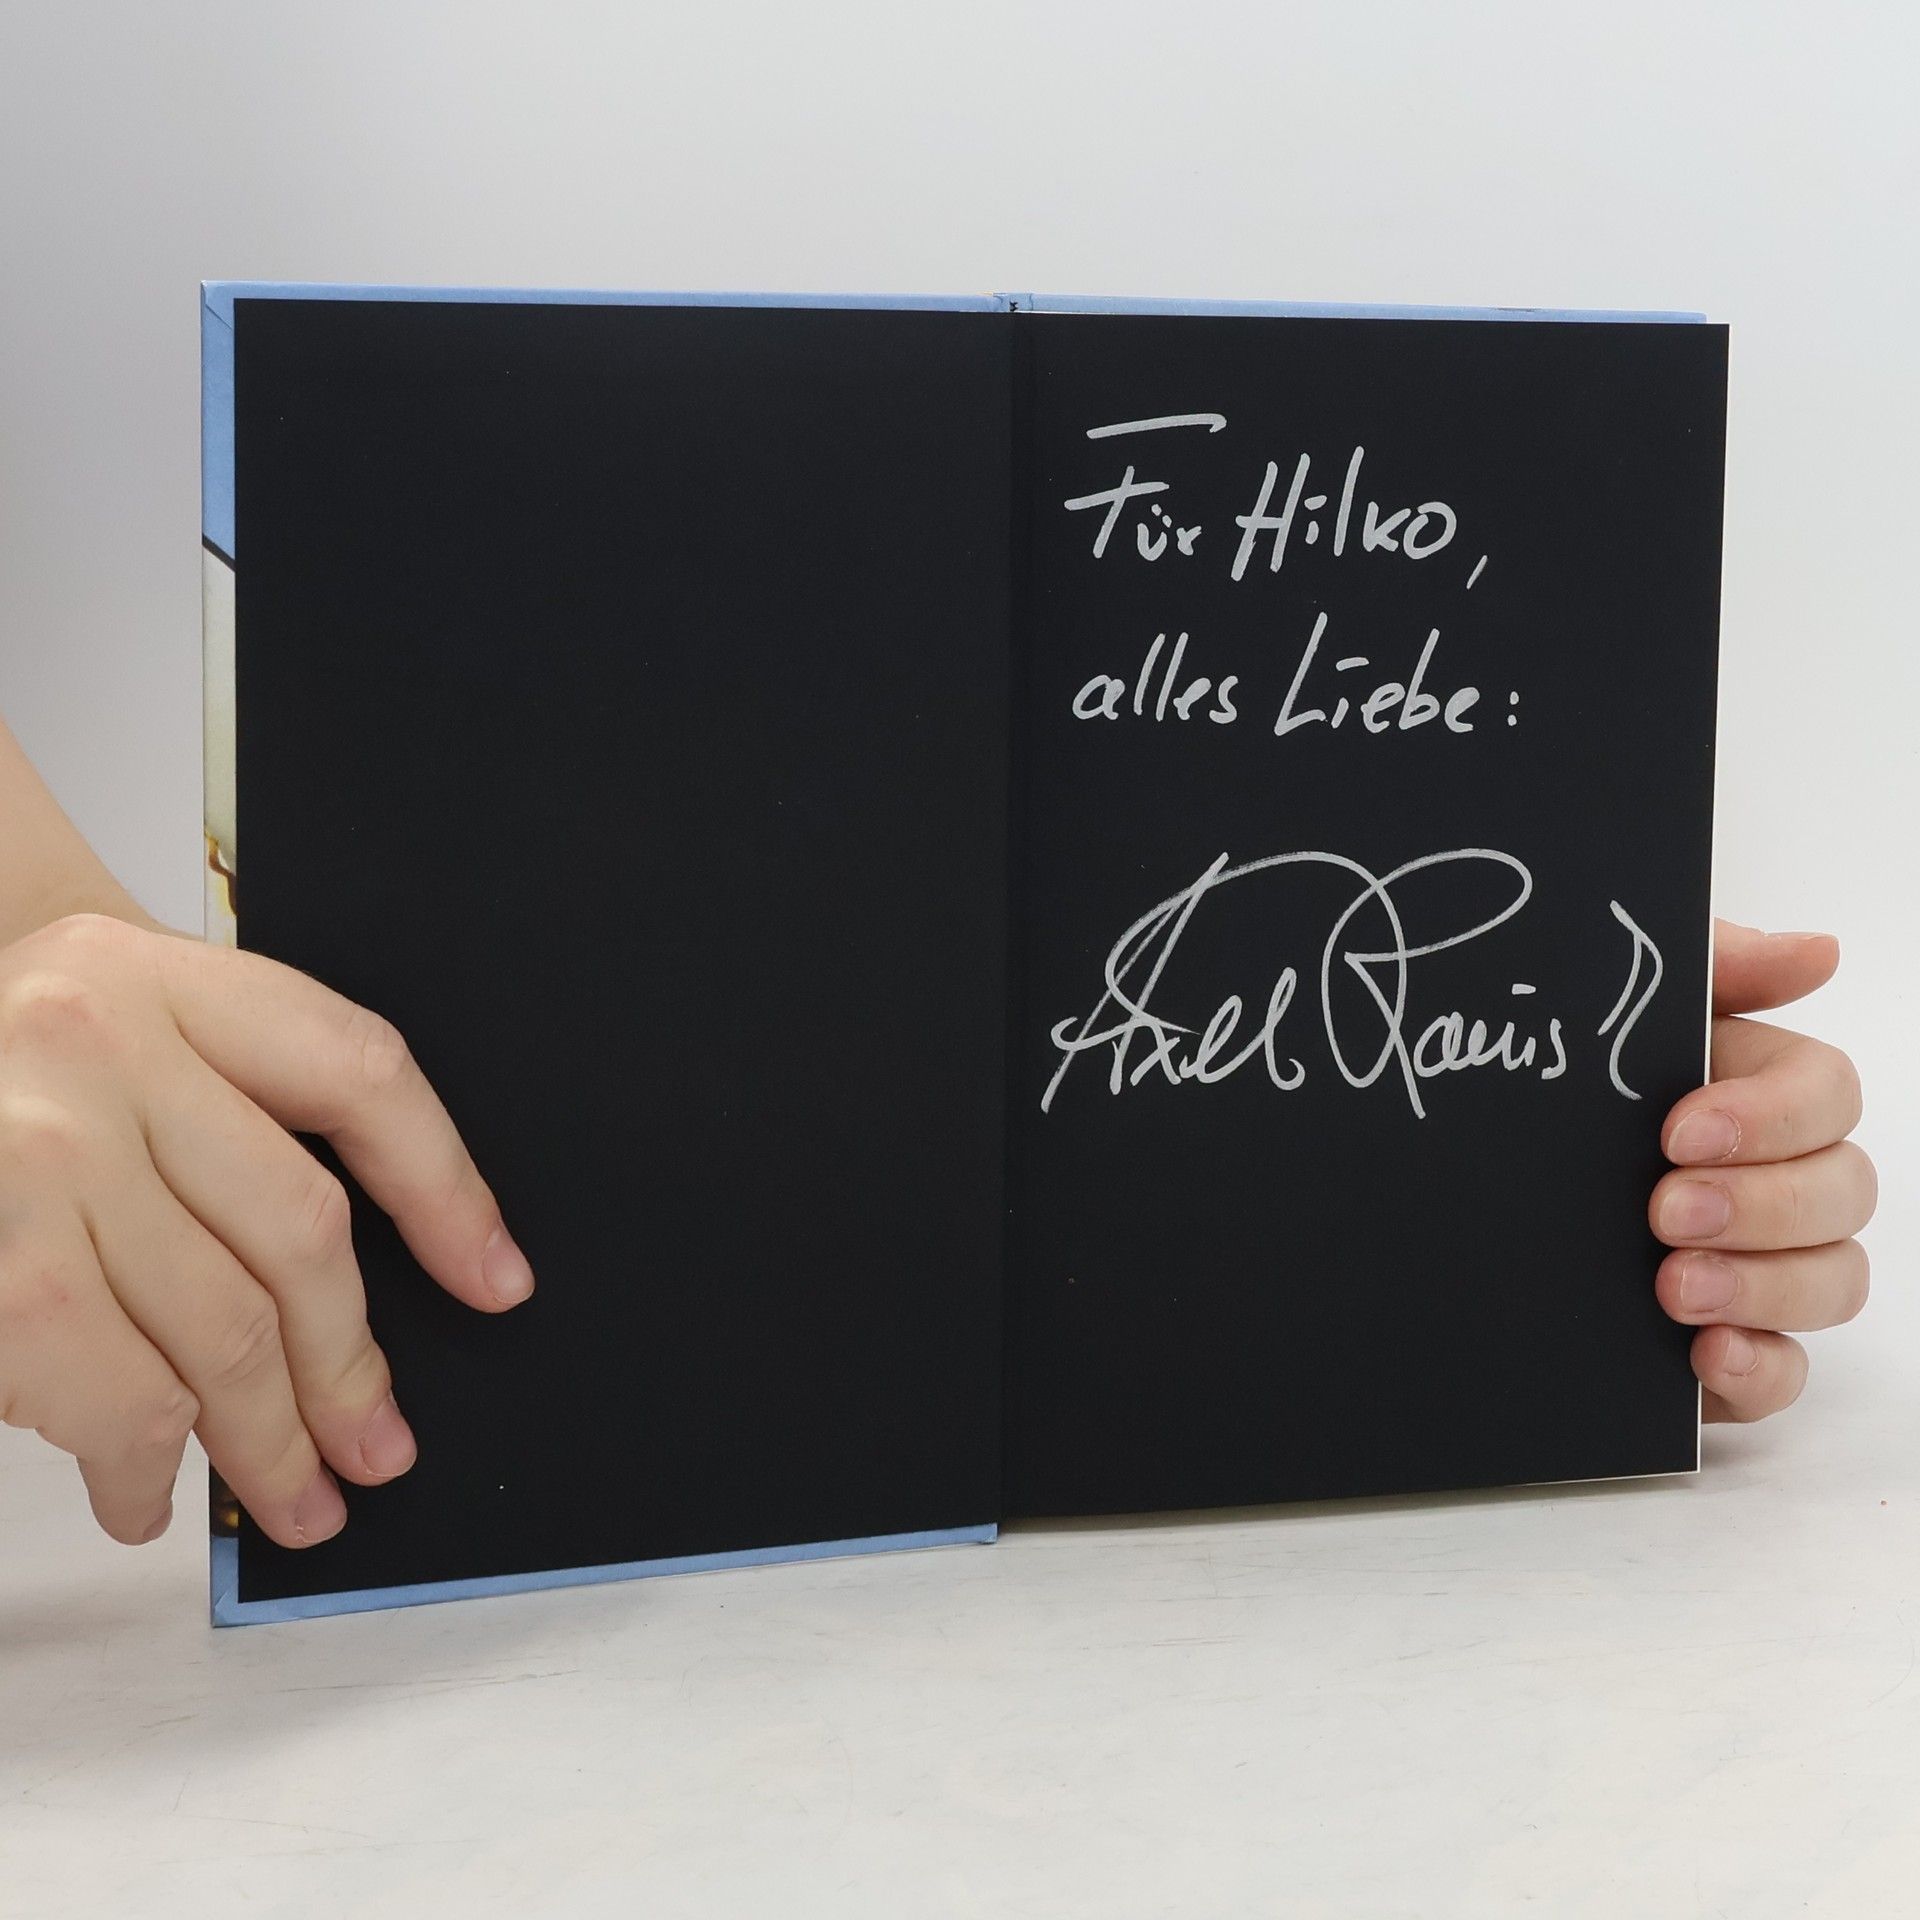 Für Hilko,
alles Liebe:
Axel Ranis